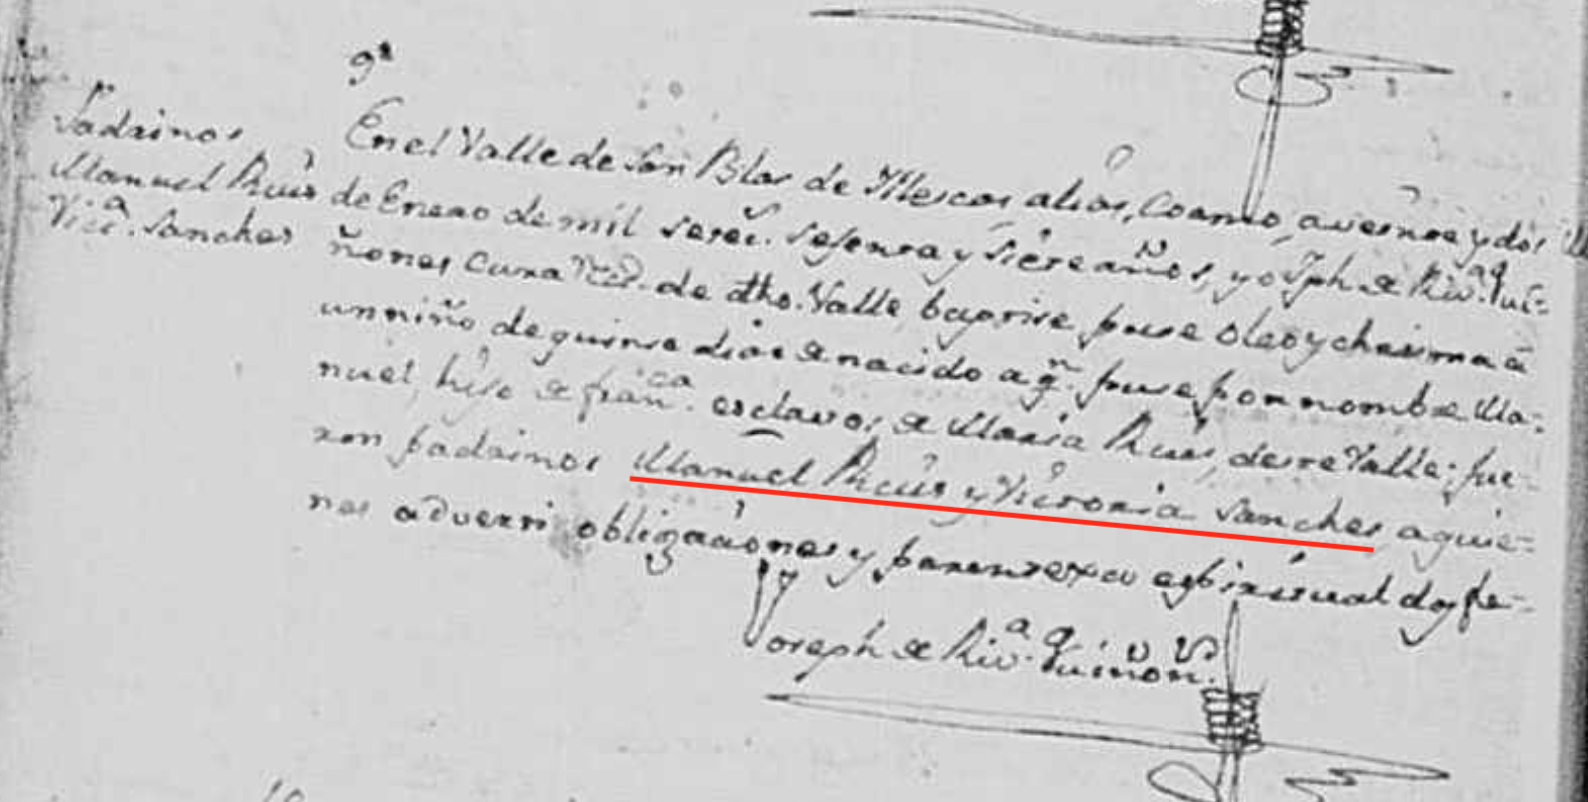 9ª
Padrinos
Manuel Ruís
Vicª. Sanches
En el Valle de San Blas de Yllescas, alias, Coamo, a veinte y dos
de Enero de mil setec̃. sesenta y siete años, yo Jph de Rivª. Qui-
ñones Cura de dho. Valle baptise puse Oleo y chrisma â
un niño de quinse dias de nacido a qⁿ. puse por nombre Ma-
nuel, hijo de Francᶜᵃ. esclavos de Maria Ruis, deste Valle; fue-
ron padrinos Manuel Ruís y Victoria Sanches a quie-
nes adverti obligaciones y parentexco espiritual doy fe-
Joseph de Rivª. Quiñon.